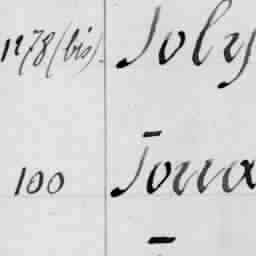 1278 (bis). Joly
100 Joua